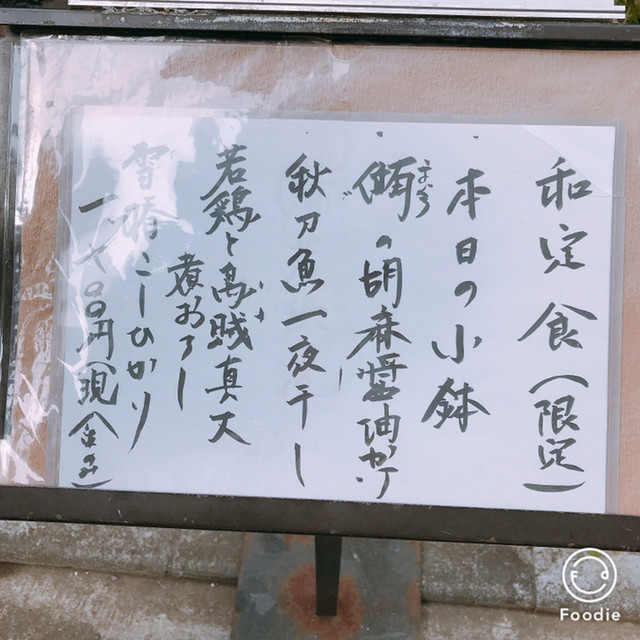 和定食(限定)
本日の小鉢
まぐろの胡麻醤油かけ
秋刀魚一夜干し
若鶏と真丈
煮おろし
雪椿こしひかり
円(現金のみ)
Foodie